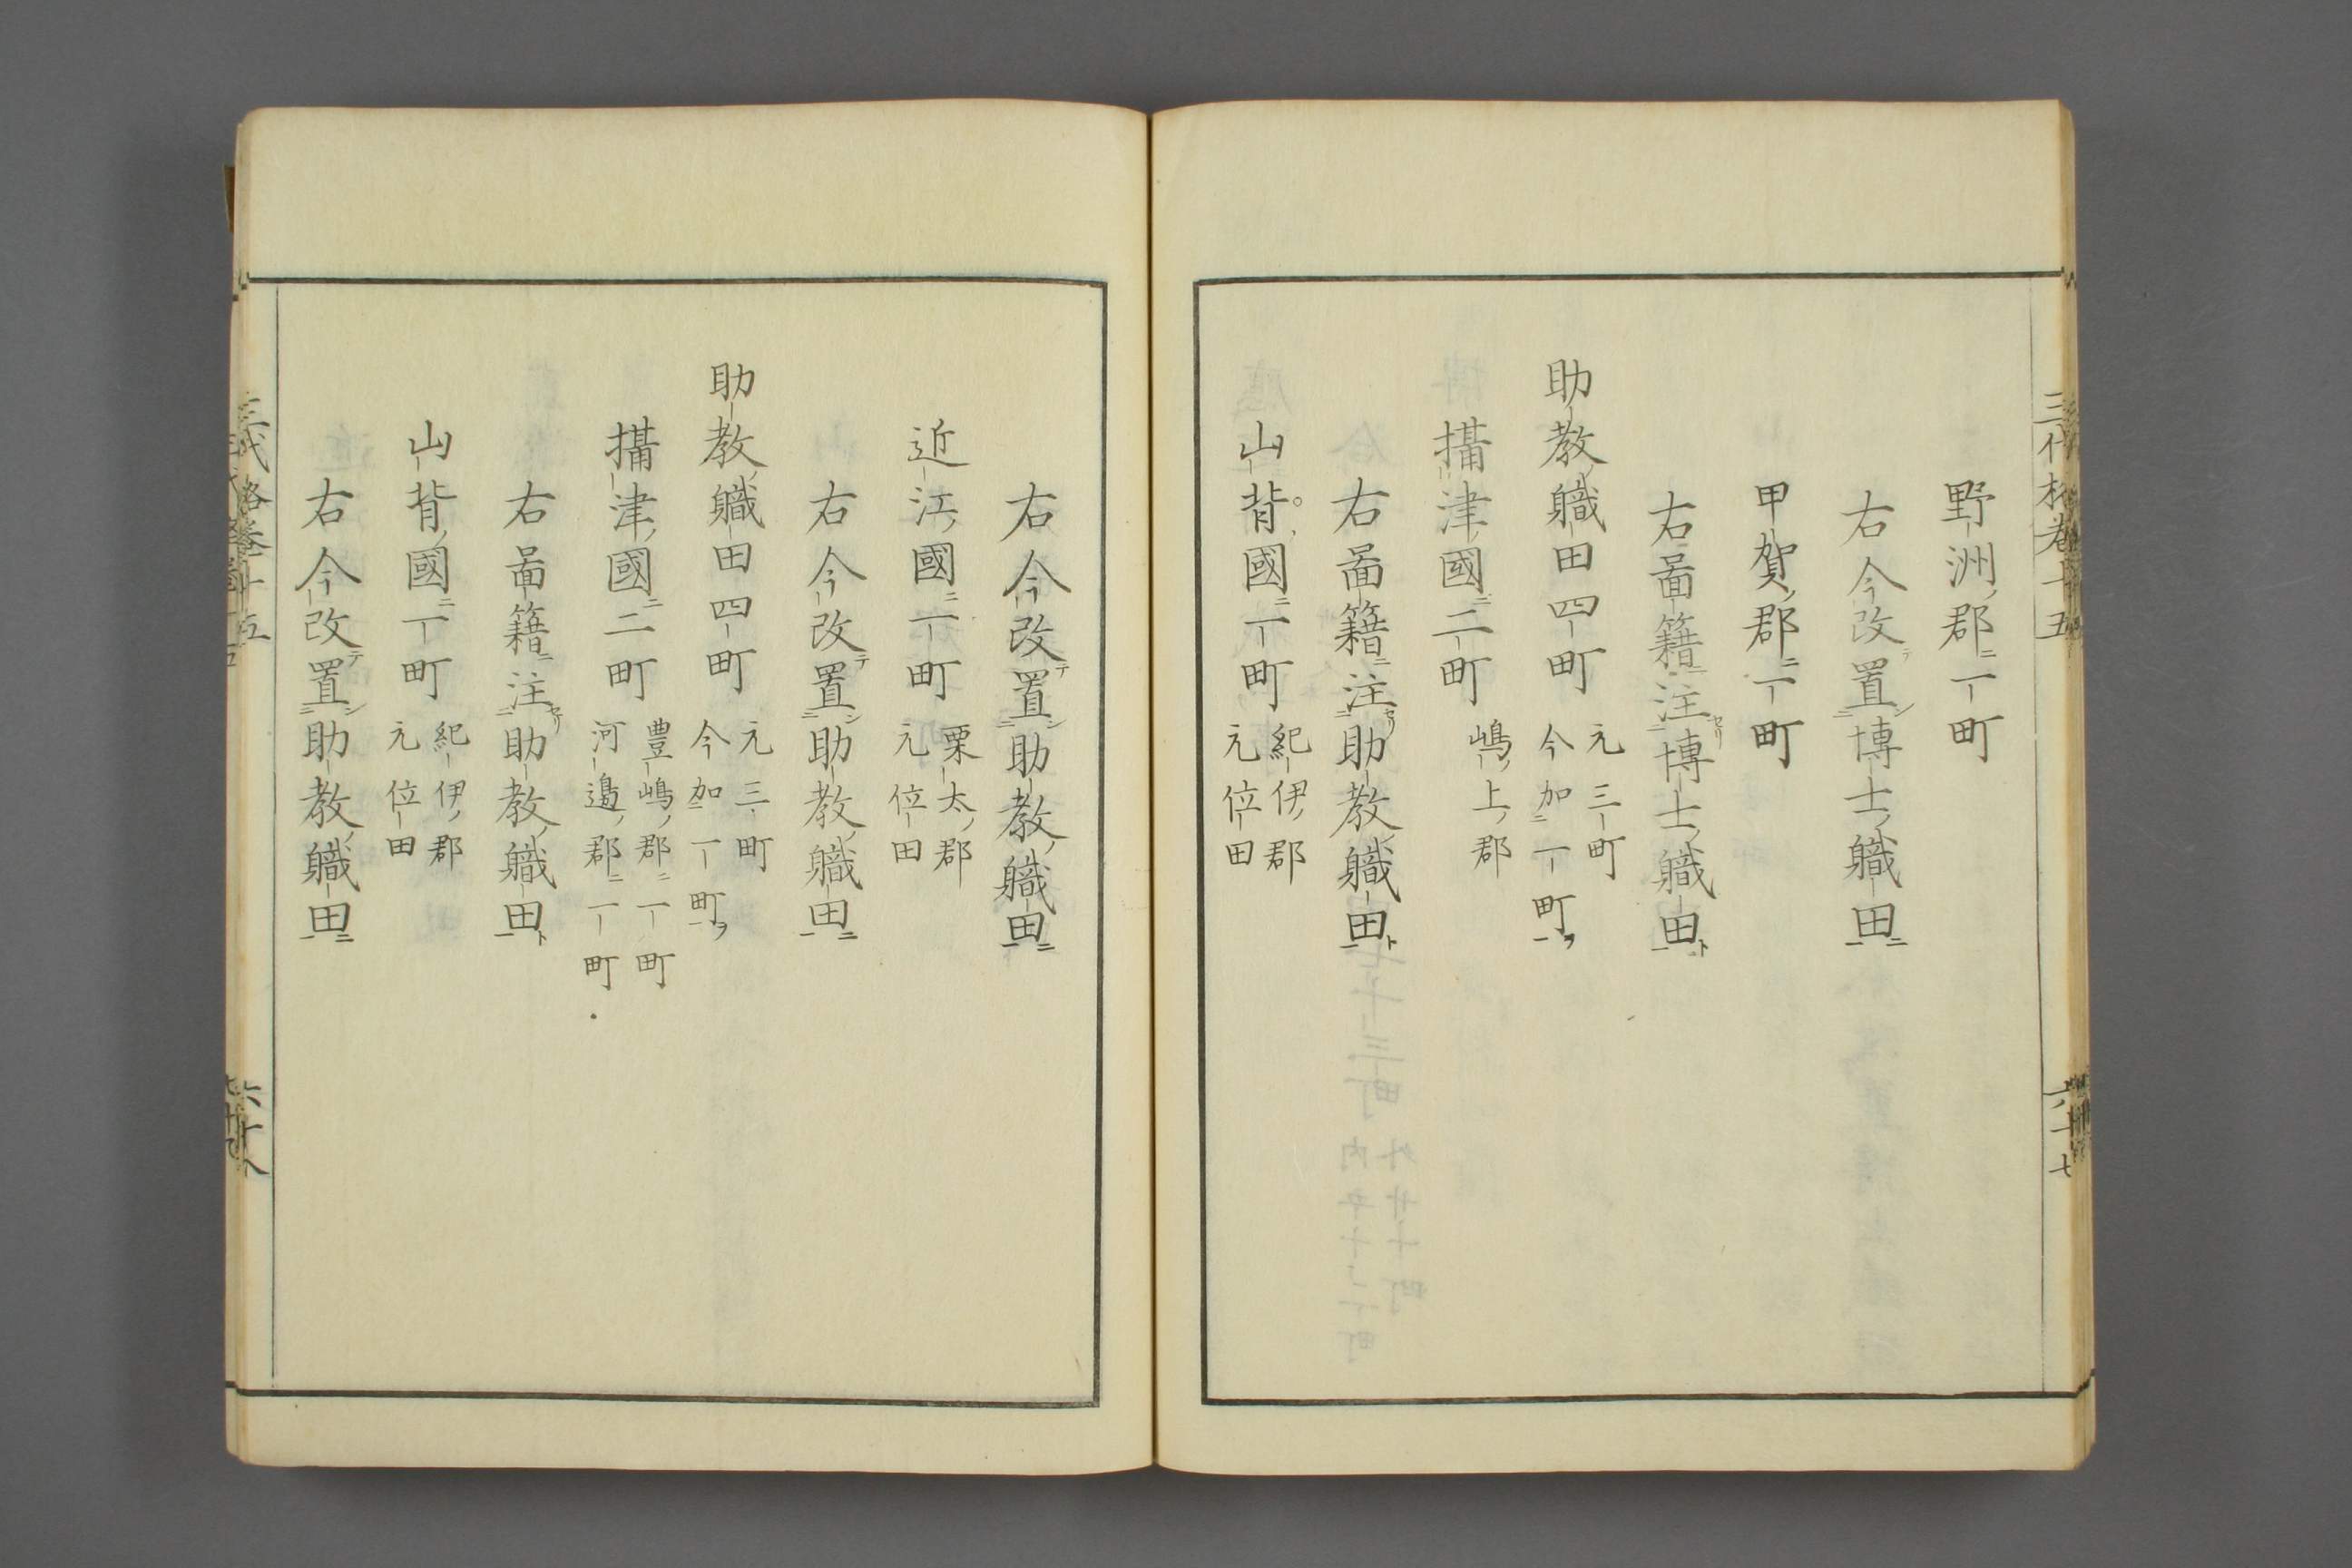 三代格卷十五
六十七
野洲郡一町
右今改置博士職田
甲賀郡一町
右啚籍注博士職田
助教職田四町 元三町
今加一町
攝津國二町 嶋上郡
右啚籍注助教職田
山背國一町 紀伊郡
元位田
右今改置助教職田
近江國一町 栗太郡
元位田
右今改置助教職田
助教職田四町 元三町
今加一町
攝津國二町 豊嶋郡一町
河邉郡一町
右啚籍注助教職田
山背國一町 紀伊郡
元位田
右今改置助教職田
六十八